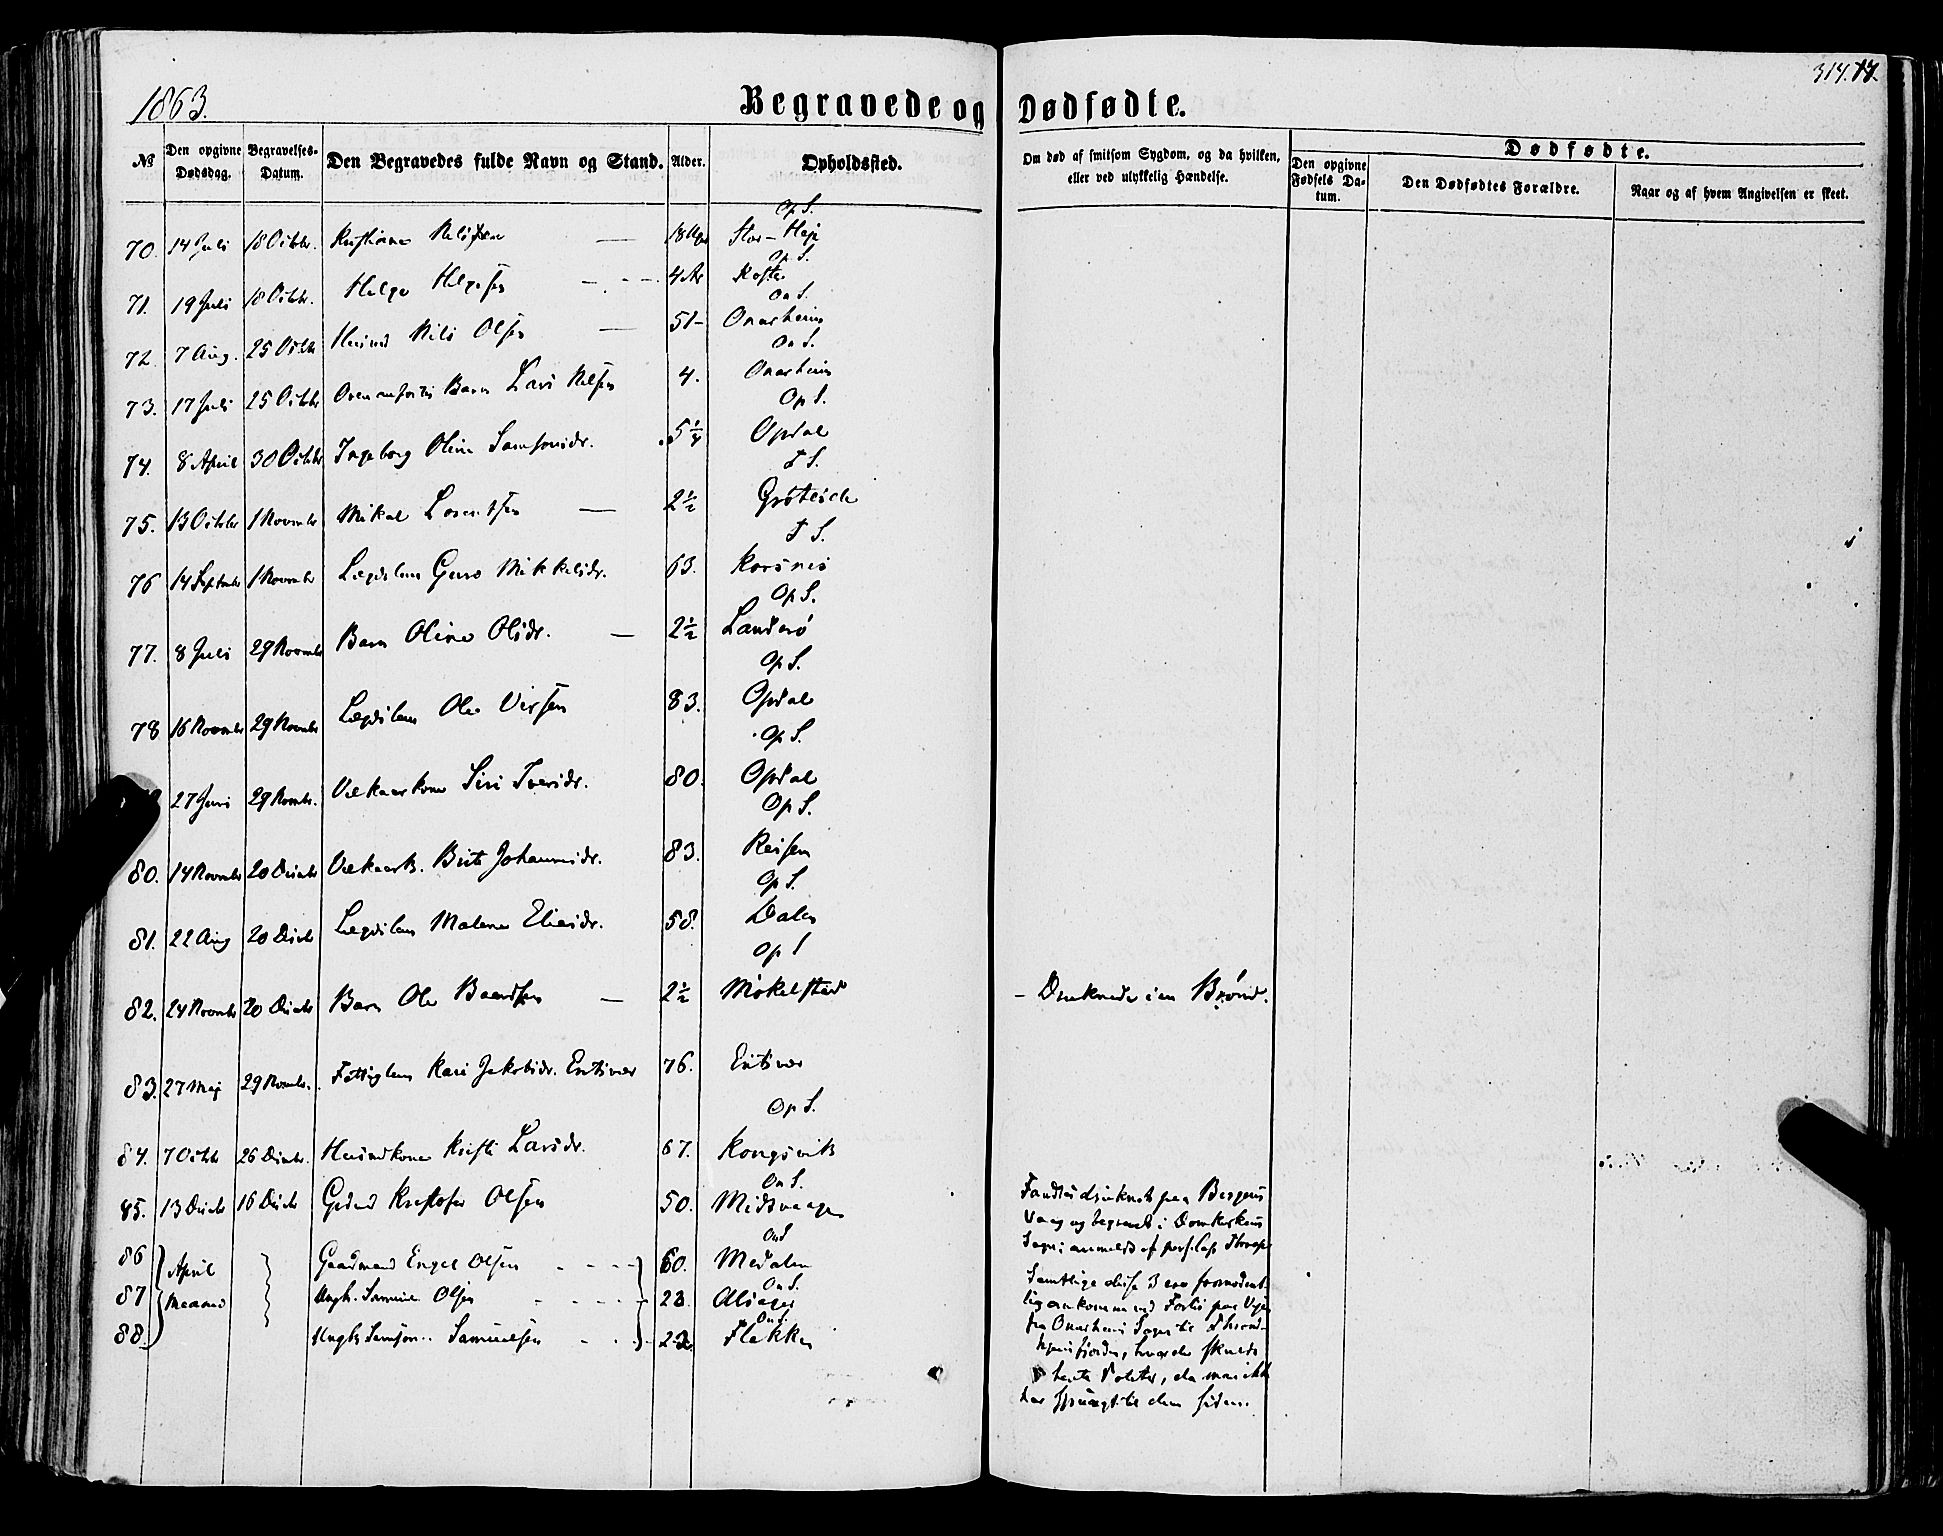 1863.
Begravede og Dødfødte.
314. 77.
№
Den opgivne Dødsdag.
Begravelses-Datum.
Den Begravedes fulde Navn og Stand.
Alder.
Opholdssted.
Om død af smitsom Sygdom, og da hvilken, eller ved ulykkelig Hændelse.
Dødfødte.
Den opgivne Fødsels Da-tum.
Den Dødfødtes Forældre.
Naar og af hvem Angivelsen er skeet.
Op S.
70. 14 Juli 18 Octbr. Kristiane — 18 Stor-Haje
Op S.
71. 19 Juli 18 Octbr. Helge Helgesen — 4 Ar
On S.
72. 7 Aug. 25 Octbr Huusmd Nils Olsen — 51 - Onarheim
On S.
73. 17 Juli 25 Octbr Barn Lars Nilsen 4. Onarheim
Op S.
74. 8 April 30 Octbr Ingeborg Oline Samsonsdr. 5 1/4 Opdal
T S.
75. 13 Octbr 1 Novembr Mikal Lorentsen — 2 1/2
T S.
76 14 Septembr 1 Novembr Lægdslem Guro Mikkelsdr. 63. Korsnes
Op S.
77. 8 Juli 29 Novembr Barn Oline Olsdr. — 2 1/2 Landerø
Op S.
78 16 Novembr 29 Novembr Lægdslem Ole 83. Opdal
Op S.
27 Juni 29 Novembr. Vilkaarkone Siri Iversdr. 80. Opdal
Op S.
80. 14 Novembr 20 Decmbr Vilkaark. Brite Johannesdr. 83. Reisen
Op S.
81. 22 Aug 20 Decbr Lægdslem Malene Eliasdr. 58. Dalen
Op S
82. 24 Novembr 20 Decmbr Barn Ole Baardsen — 2 1/2 Møkelstad - Druknede i en Brønd.
83. 27 Maj 29 Novembr. Fattiglem Kari Jakobsdr. Endsvær 76. Endsvær
Op S.
84. 7 Octbr 26 Decmbr. Huusmdkone Kristi Larsdr. 67. Kongsvik
On S.
85. 13 Decbr 16 Decbr Grdmd Kristofer Olsen 50. Midtvaage Fandtes druknet paa Bergens
Vaag og begravet i Domkirkens
Sogn; anmeldt af
On S
86 April Gaardmand Engel Olsen - - - - 60. Medalen
Samtlige disse 3 ere formodent-
On S.
87 Maaned Ungk. Olsen - - - - 23 Alsager
lig omkommne ved Forlis paa Vejen
On S.
88. Ungk. Samson Samuelsen - - - 22 Flekke
fra Onarheims Sogn til Thrond-
hjemsfjorden, hvor de skulde
hente, da man ikke
har spurgt til dem siden.